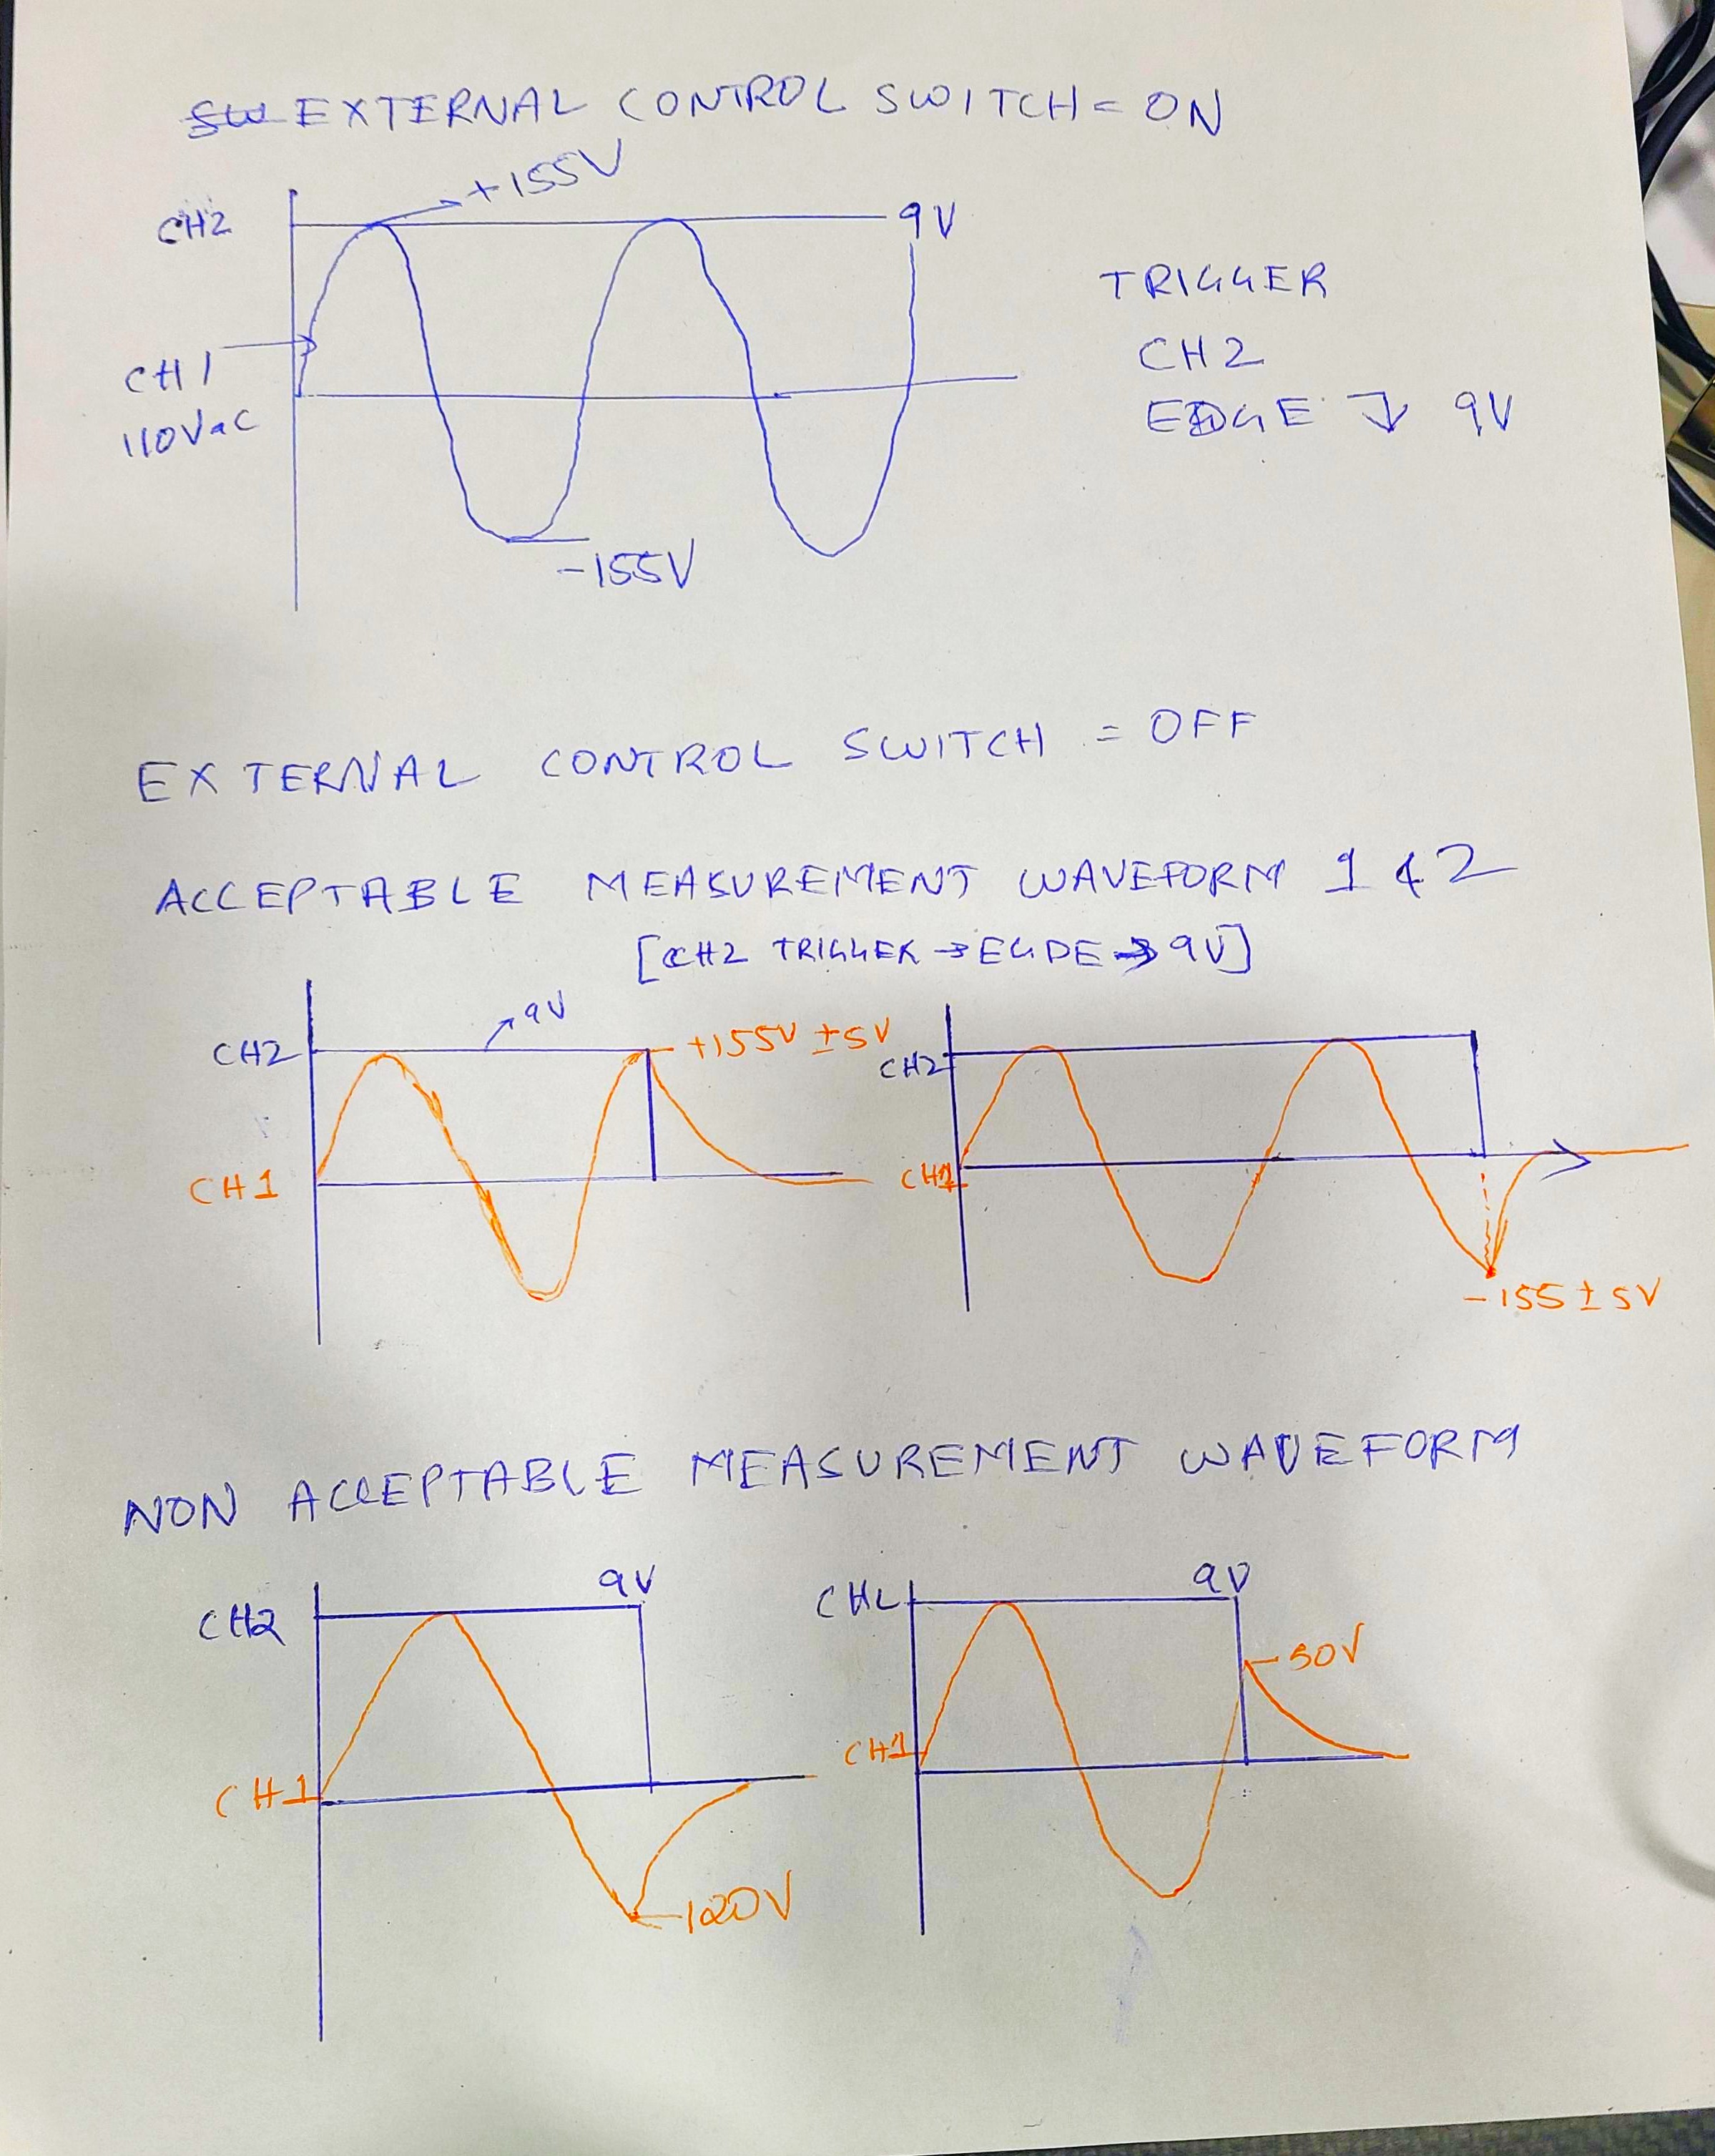 EXTERNAL CONTROL SWITCH = ON
+155V
CH2
9V
CH1
110Vac
-155V
TRIGGER
CH2
EDGE ↓ 9V
EXTERNAL CONTROL SWITCH = OFF
ACCEPTABLE MEASUREMENT WAVEFORM 1 & 2
[CH2 TRIGGER → EGDE → 9V]
CH2
9V
+155V ±5V
CH1
CH2
CH1
-155 ± 5V
NON ACCEPTABLE MEASUREMENT WAVEFORM
CH2
9V
CH1
-120V
CH2
9V
-50V
CH1